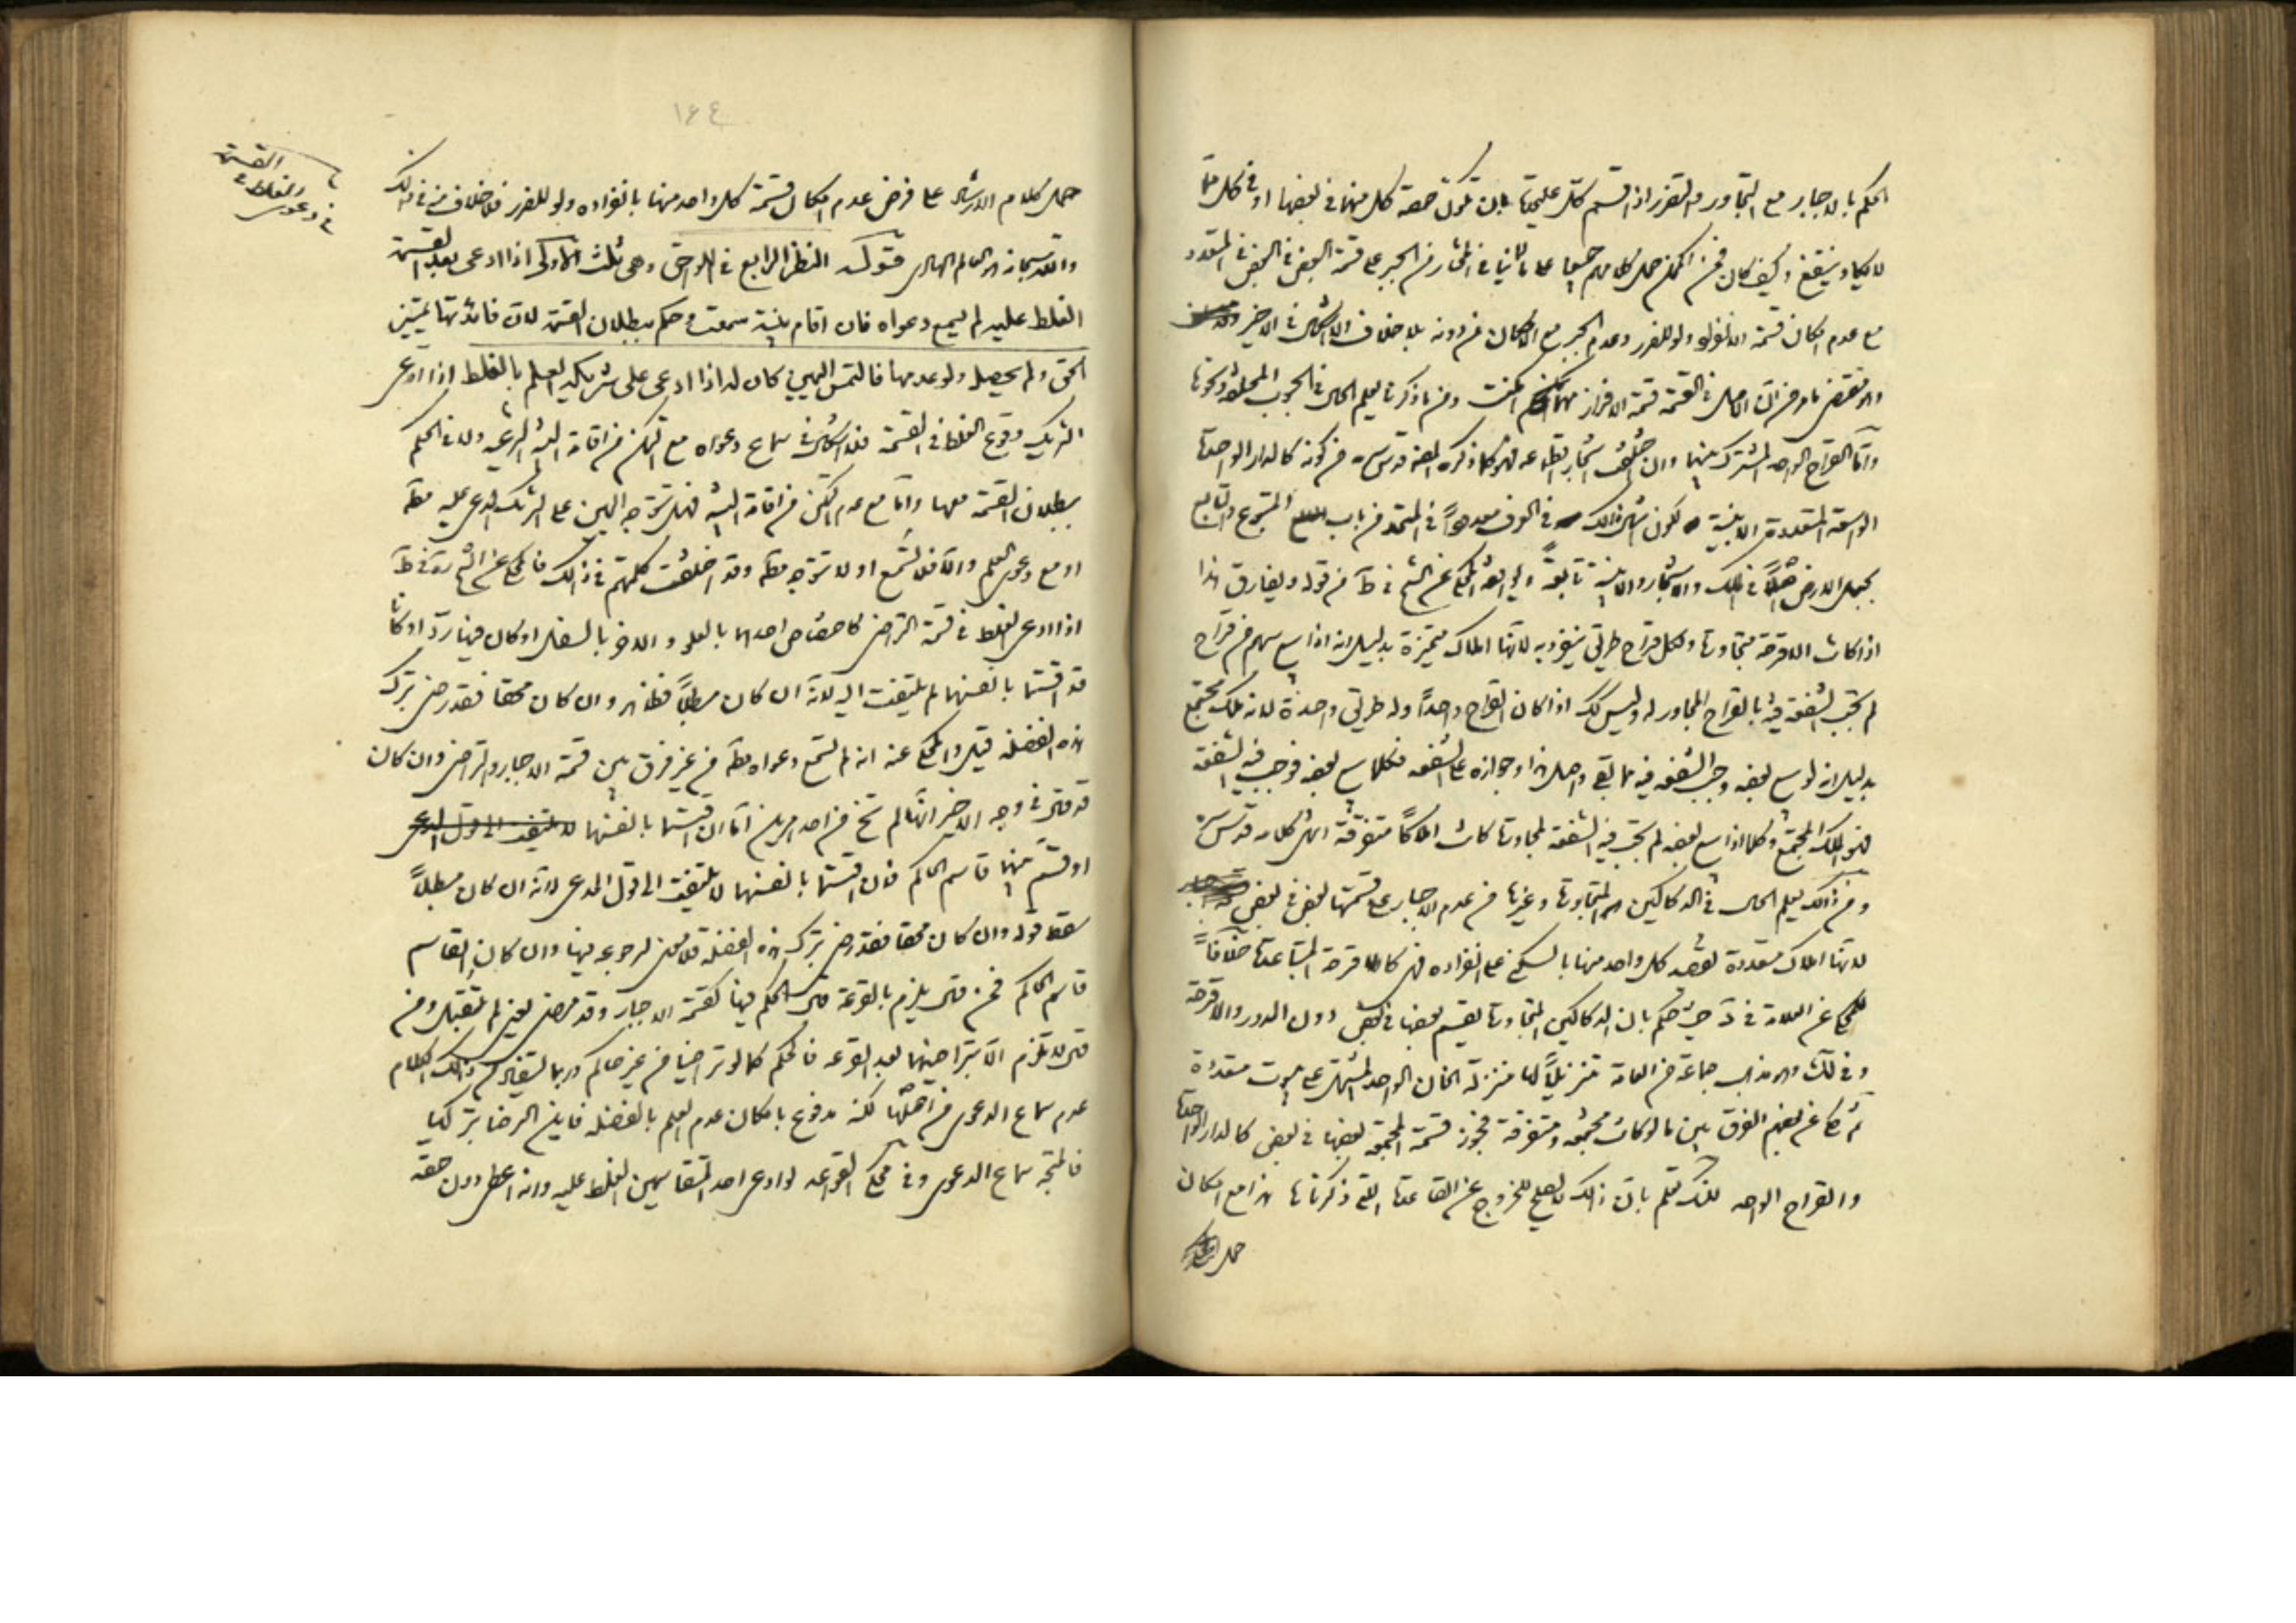 الحكم بالاجبار مع التجاور والتعذر اذا قسم كل عليحدة بان تكون حصة كل منهما في بعضها او في كل منها
لا يكاد ينتفع وكيف كان فمن الممكن حمل كلامهم جميعا على ما في المختار من الجبر على قسمة البعض في البعض في المتعدد
مع عدم امكان قسمة الانفراد ولو للضرر وعدم الجبر مع الامكان من دونه بلا خلاف الا شكال في الاخير
والا نقض بما مر من ان الاصل في القسمة قسمة الافراز مهما امكنت ومن ما ذكرنا يعلم الحال في الحبوب المختلفة ونحوها
واما القراح الواحد المشترك بينهما وان اختلف اشجار قطعه فهو كما ذكره المصنف قدس سره من كونه كالدار الواحدة
الواسعة المتعددة الابنية لكون مثل ذلك في العرف معدودا في المتحد من باب المتبوع والتابع
بجعل الارض اصلا في الملك والاشجار والابنية تابعة ويوافقه المحكي عن الشيخ في ط من قوله ويفارق هذا
اذا كانت الاقرحة متجاورة ولكل قراح طريق ينفرد به لانها املاك متميزة بدليل انه اذا بيع سهم من قراح
لم تجب الشفعة فيه بالقراح المجاور له وليس كك اذا كان القراح واحدا وله طريق واحدة لانه ملك مجتمع
بدليل انه لو بيع بعضه وجب الشفعة فيه بما بقي واصل هذا وجوازه على الشفعه فكلما بيع بعضه فوجب فيه الشفعة
فهو الملك المجتمع وكلما اذا بيع بعضه لم تجب فيه الشفعة لمجاورة كانت املاكا متفرقة انتهى كلامه قدس سره
ومن ذلك يعلم الحال في الدكاكين المتجاورة وغيرها من عدم الاجبار على قسمتها بعض في بعض
لانها املاك متعددة يقصد كل واحد منها بالسكنى على انفراده فهي كالاقرحة المتباعدة خلافا
للمحكي عن العلامة في د حيث حكم بان الدكاكين المتجاورة يقسم بعضها في بعض دون الدور والاقرحة
وفي ذلك وهو مذهب جماعة من العامة تنزيلا لها منزلة الخان الواحد المشتمل على بيوت متعددة
ثم حكى عن بعضهم الفرق بين ما لو كانت مجتمعه ومتفرقة فجوز قسمة المجتمعة بعضها في بعض كالدار الواحدة
والقراح الواحد لكنك تعلم بان ذلك لا يصلح للخروج عن القاعدة التي ذكرناها هذا مع امكان
حمل
١٦٤
حمل كلام الارشاد على فرض عدم امكان قسمة كل واحد منها بانفراده ولو للضرر فلا خلاف منه في ذلك
والله سبحانه هو العالم الهادي قوله النظر الرابع في اللواحق وهي ثلث الاولى اذا ادعى بعد القسمة
الغلط عليه لم يسمع دعواه فان اقام بينة سمعت وحكم ببطلان القسمة لان فائدتها تمييز
الحق ولم يحصل ولو عدمها فالتمس اليمين كان له اذا ادعى على شريكه العلم بالغلط اذا ادعى
الشريك وقوع الغلط في القسمة فلا اشكال في سماع دعواه مع التمكن من اقامة البينة الشرعية ولا في الحكم
ببطلان القسمة معها واما مع عدم التمكن من اقامة البينة فهل يتوجه اليمين على الشريك المدعى عليه مطلقا
او مع دعوى العلم والا فلا تسمع او لا يتوجه مطلقا وقد اختلفت كلمتهم في ذلك فالمحكي عن الشيخ ره في ط
اذا ادعى الغلط في قسمة التراضي كاختصاص احدهما بالعلو والاخر بالسفل او كان فيها رد او كانا
قد اقتسما بانفسهما لم يلتفت اليه لانه ان كان مبطلا فظاهر وان كان محقا فقد رضي بترك
هذه الفضلة قيل والمحكي عنه انه لم تسمع دعواه مطلقا من غير فرق بين قسمة الاجبار والتراضي وان كان
قد قال في وجه الاخير انهما لم تخل من احد امرين اما ان اقتسما بانفسهما لا يلتفت الى قول المدعي
او قسم بينهما قاسم الحاكم فان اقتسما بانفسهما لا يلتفت الى قول المدعي لانه ان كان مبطلا
سقط قوله وان كان محقا فقد رضي بترك هذه الفضلة فلا معنى لرجوعه فيها وان كان القاسم
قاسم الحاكم فمن قال يلزم بالقرعة قال الحكم فيها كقسمة الاجبار وقد مضى يعني لم تقبل ومن
قال لا تلزم الا بتراضيهما بعد القرعه فالحكم كما لو تراضيا من غير حاكم وربما يستفاد من ذلك الكلام
عدم سماع الدعوى من اصلها لكنه مدفوع بامكان عدم العلم بالفضلة فاين الرضا بتركها
فالمتجه سماع الدعوى وفي محكي القواعد لو ادعى احد المتقاسمين الغلط عليه وانه اعطي دون حقه
في دعوى
الغلط في
القسمة